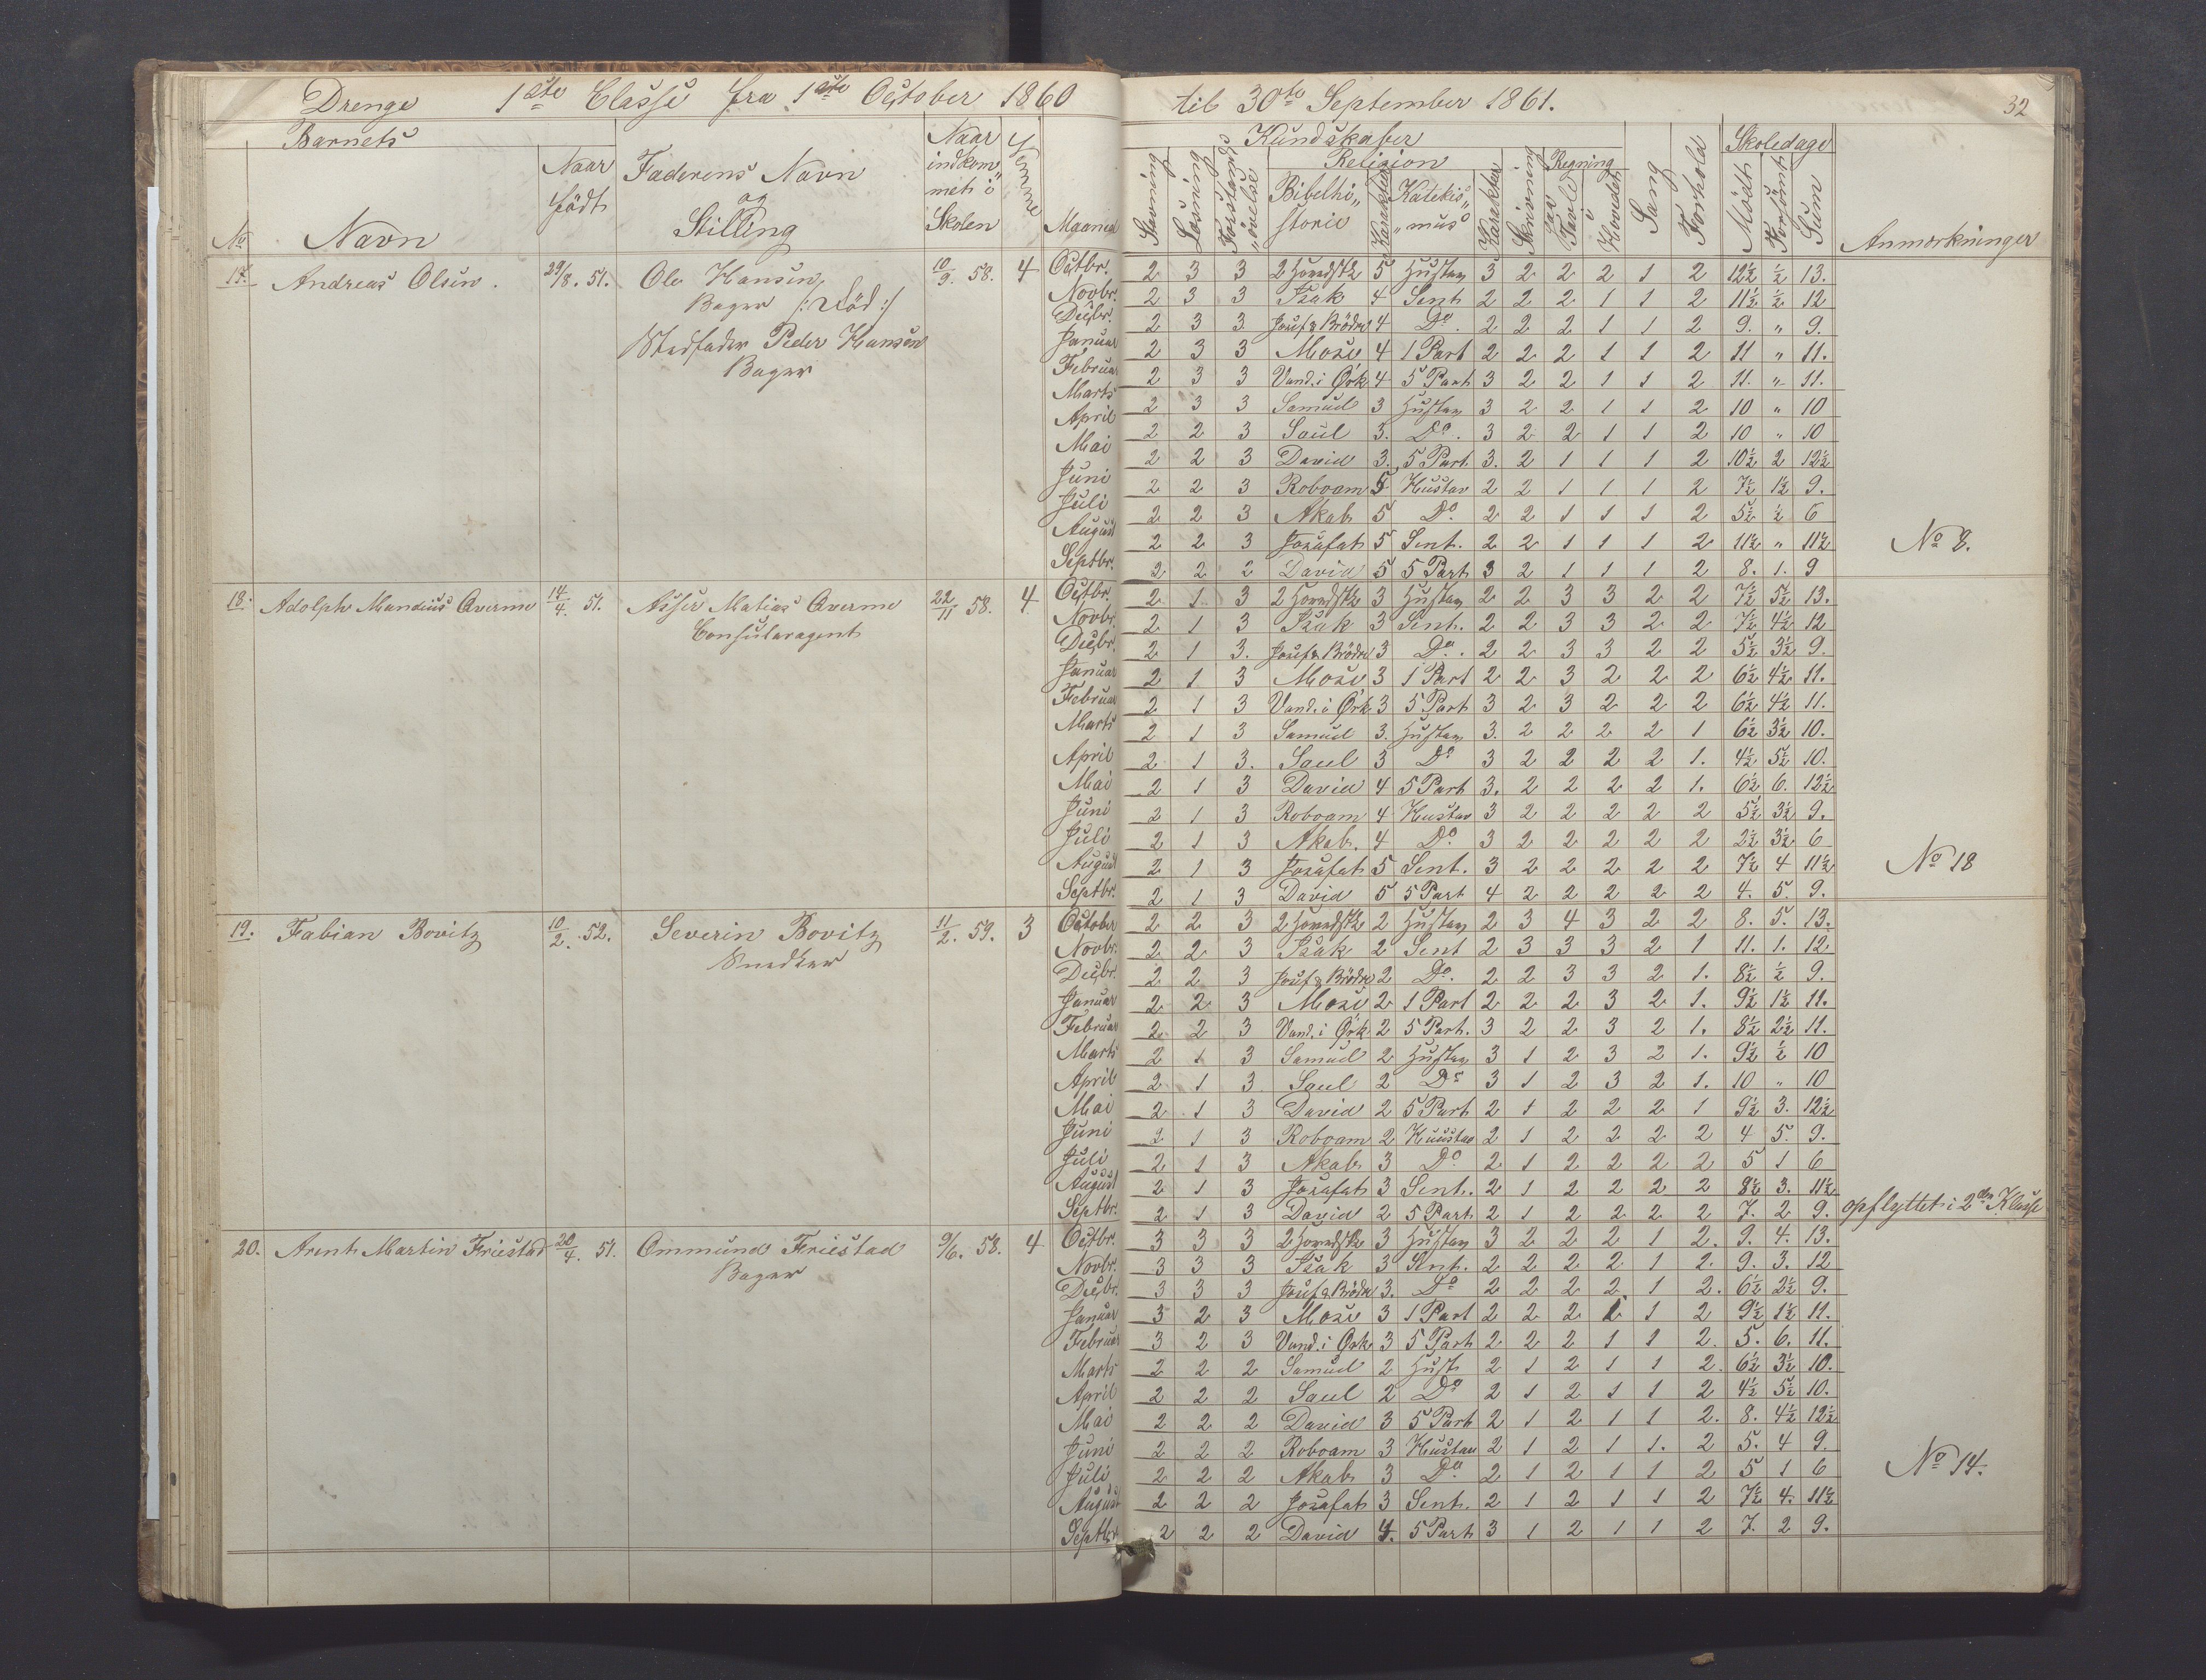 Drenge 1ste Classe fra 1ste October 1860 til 30te September 1861. 32
Barnets
No
Navn
Naar födt
Faderens Navn og Stilling
Naar indkom„ met i Skolen
Maaned
Kundskaber
Stavning
Læsning
Forstands „övelse
Religion
Bibelhi„ storie
Karakter
Katekis„ „mus
Karakter
Skrivning
Regning
Paa Tavle
i Hovedet
Sang
Forhold
Skoledage
Mödt
Forsömt
Sum
Anmærkninger
17. Andreas Olsen. 29/8. 51. Ole Hansen, 10/9. 58. 4 Octbr. 2 3 3 2 Hovedstk 5 Hustav 3 2 2 2 1 2 12½ ½ 13.
Bager /: Död :/ Novbr. 2 3 3 Isak 4 Sent 2 2 2 1 1 2 11½ ½ 12
Decbr. 2 3 3 Josef & Brödre 4 Do. 2 2 2 1 1 2 9. „ 9.
Stedfader Peder Hansen Januar 2 3 3 Mose 4 1 Part 2 2 2 1 1 2 11 „ 11.
Bager Februar 2 3 3 Vand. i Örk 4 5 Part 3 2 2 1 1 2 11. „ 11.
Marts 2 3 3 Samuel 3 Hustav 3 2 2 1 1 2 10 „ 10
April 2 2 3 Saul 3. Do. 3 2 2 1 1 2 10 „ 10
Mai 2 2 3 David 3. 5 Part 3. 2 1 1 1 2 10½ 2 12½
Juni 2 2 3 Roboam 5 Hustav 2 2 1 1 1 2 7½ 1½ 9.
Juli 2 2 3 Akab 5 Do. 2 2 1 1 1 2 5½ ½ 6
August 2 2 3 Josafat 5 Sent. 2 2 1 1 1 2 11½ „ 11½ No 8.
Septbr. 2 2 2 David 5 5 Part 3 2 1 1 1 2 8. 1. 9
18. Adolph Mandius Qverme 14/4. 51. Asser Matias Qverme 22/11 58. 4 Octbr. 2 1 3 2 Hovedstk 3 Hustav 2 2 3 3 2 2 7½ 5½ 13.
Consularagent Novbr. 2 1 3 Isak 3 Sent. 2 2 3 3 2 2 7½ 4½ 12
Decbr. 2 1 3. Josef & Brödre 3 Do. 2 2 3 3 2 2 5½ 3½ 9.
Januar 2 1 3 Mose 3 1 Part 2 2 3 2 2 2 6½ 4½ 11.
Februar 2 1 3 Vand. i Örk. 3 5 Part 3 2 3 2 2 2 6½ 4½ 11.
Marts 2 1 3 Samuel 3. Hustav 3. 2 2 2 2 1 6½ 3½ 10.
April 2 1 3. Saul 3 Do 3 2 2 2 2 1. 4½ 5½ 10.
Mai 2 1 3 David 4 5 Part 3. 2 2 2 2 1. 6½ 6. 12½
Juni 2 1 3 Roboam 4 Hustav 3 2 2 2 2 2 5½ 3½ 9.
Juli 2 1 3 Akab. 4 Do. 3 2 2 2 2 2 2½ 3½ 6
August 2 1 3 Josafat 5 Sent. 3 2 2 2 2 2 7½ 4 11½ No 18
Septbr. 2 1 3 David 5 5 Part 4 2 2 2 2 2 4. 5. 9.
19. Fabian Bovitz 10/2. 52. Severin Bovitz 11/2. 59. 3 October 2 2 3 2 Hovedstk 2 Hustav 2 3 4 3 2 2 8. 5. 13.
Snedker Novbr. 2 2 3 Isak 2 Sent 2 3 3 3 2 1 11. 1. 12
Decbr. 2 2 3 Josef & Brödre 2 Do. 2 2 3 3 2 1. 8½ ½ 9.
Januar 2 2 3 Mose 2 1 Part 2 2 2 3 2 1. 9½ 1½ 11.
Februar 2 2 3 Vand. i Örk. 2 5 Part. 3 2 2 3 2 1. 8½ 2½ 11.
Marts 2 1 3 Samuel 2 Hustav 3 1 2 3 2 1. 9½ ½ 10
April 2 1 3 Saul 2 Do 3 1 2 3 2 1. 10 „ 10
Mai 2 1 3 David 2 5 Part 2 1 2 2 2 1 9½ 3. 12½
Juni 2 1 3 Roboam 2 Hustav 2 1 2 2 2 2 4 5. 9.
Juli 2 1 3 Akab 3 Do. 2 1 2 2 2 2 5 1 6
August 2 1 3 Josafat 3 Sent. 2 1 2 2 2 2 8½ 3. 11½
Septbr. 2 1 3 David 2 5 Part 2 1 2 2 2 2 7. 2 9. opflyttet i 2den Klasse
20. Arent Martin Friestad 20/4. 51. Ommund Friestad 9/6. 58. 4 Octbr. 3 3 3 2 Hovedstk 3 Hustav 3 2 2 2 1 2. 9. 4. 13.
Bager Novbr. 3 3 3 Isak 3 Sent. 2 2 2 2 1 2. 9. 3. 12
Decbr. 3 3 3 Josef & Brödre 3. Do 2 2 2 2 1 2. 6½ 2½ 9.
Januar 3 2 3 Mose 3 1 Part 2 2 2 1 1 2 9½ 1½ 11.
Februar 3 2 3 Vand. i Örk 3 5 Part 2 2 2 1 1 2. 5. 6. 11.
Marts 2 2 2 Samuel 2 Hust 2 1 2 1 1 2. 6½ 3½ 10.
April 2 2 2 Saul 2 Do 2 1 2 1 1 2 4½ 5½ 10.
Mai 2 2 2 David 3 5 Part 2 1 2 1 1 2. 8. 4½ 12½
Juni 2 2 2 Roboam 3 Hustav 2 1 2 1 1. 2 5. 4 9.
Juli 2 2 2 Akab 3 Do. 2 1 2 1 1 2 5 1 6 No 14.
August 2 2 2 Josafat 3 Sent. 2 1 2 1 1 2 7½ 4. 11½
Septbr 2 2 2 David 4. 5 Part 3 1 2 1 1 2 7. 2 9.